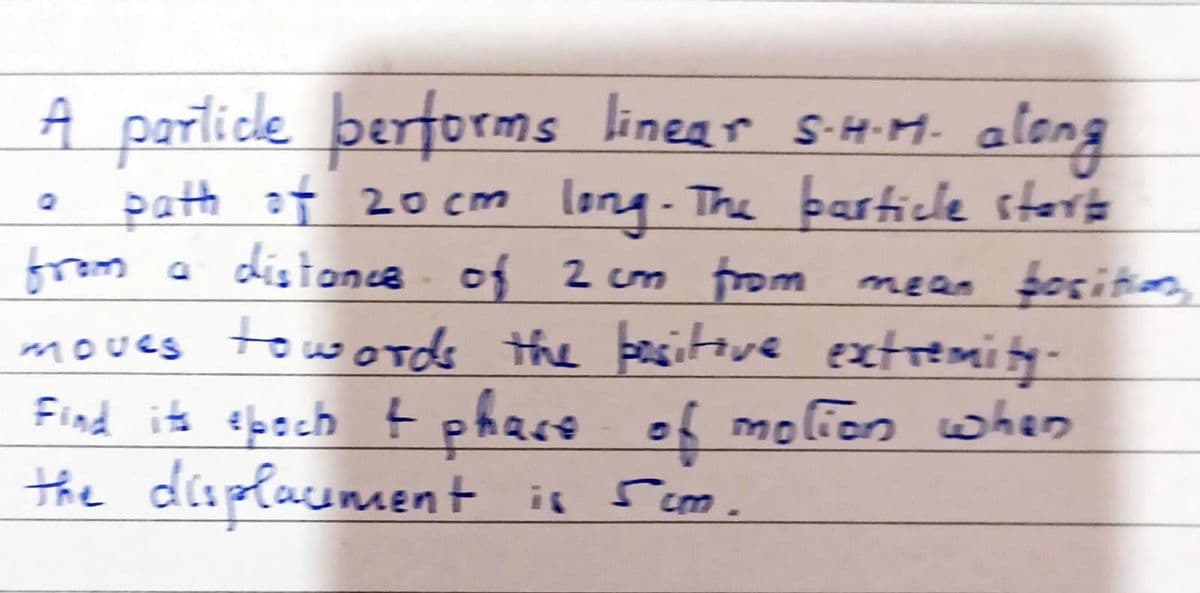 A particle performs linear S.H.M. along
a path of 20 cm long. The particle starts
from a distance of 2 cm from mean position,
moves towards the positive extremity.
Find its epoch & phase of motion when
the displacement is 5 cm.